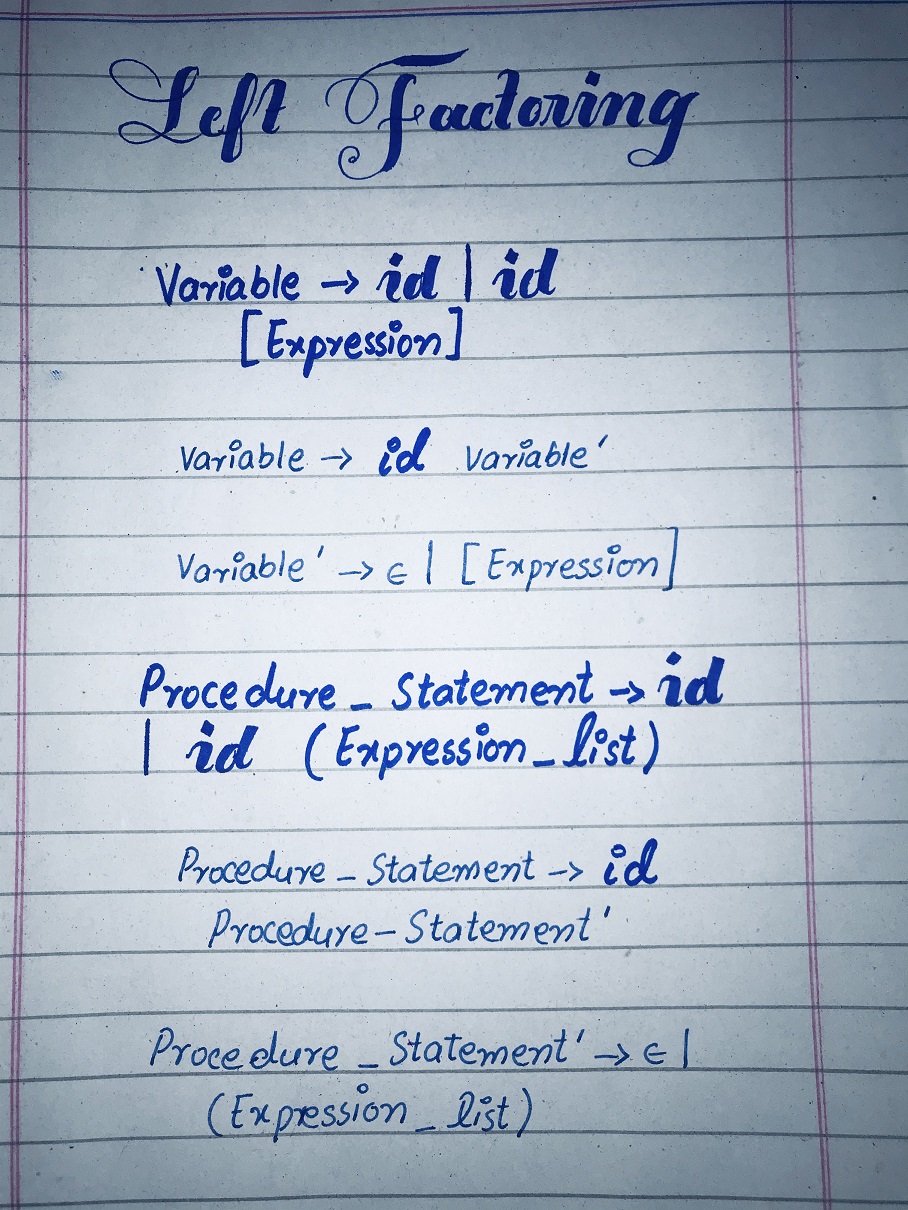 Left Factoring
Variable → id | id
[Expression]
Variable → id Variable'
Variable' → ∈ | [Expression]
Procedure_Statement → id
| id (Expression_list)
Procedure_Statement → id
Procedure-Statement'
Procedure_Statement' → ∈ |
(Expression_list)